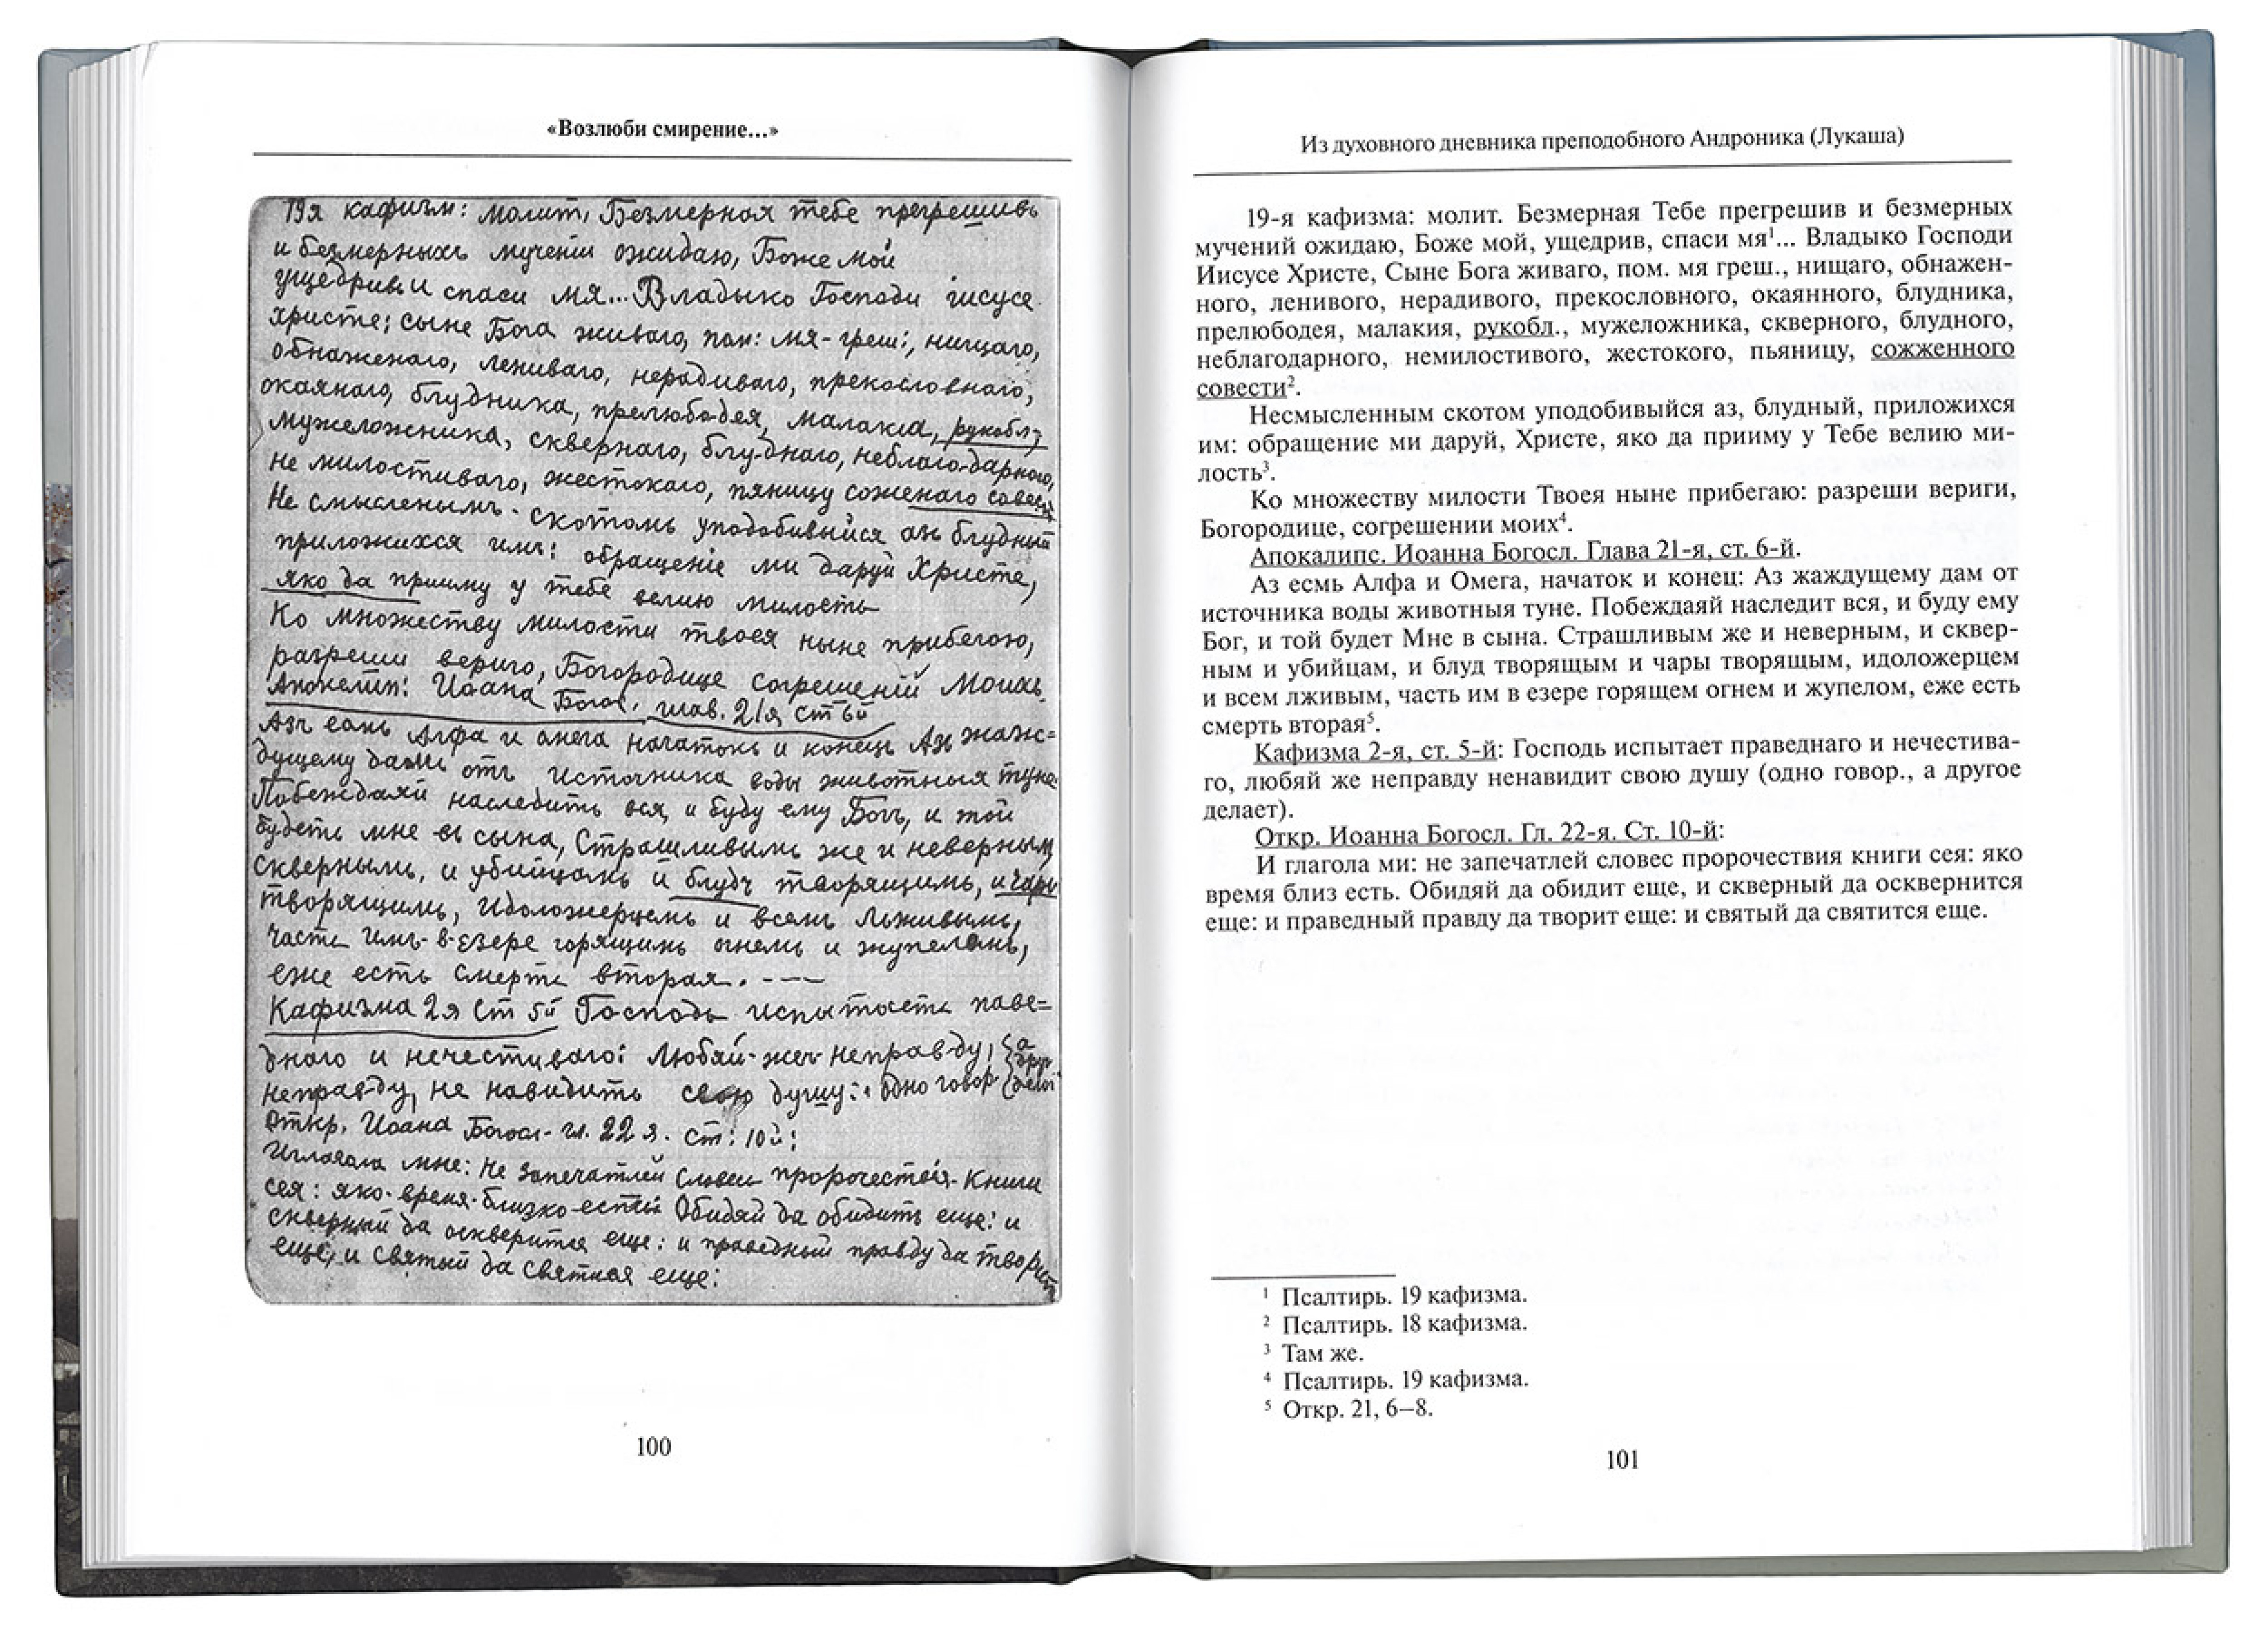 «Возлюби смирение...»
19я кафизм: молит, Безмерная тебе прегрешивъ
и безмерныхъ мучений ожидаю, Боже мой
ущедривъ и спаси мя... Владыко Господи iисусе
христе; сыне Бога живаго, пом: мя - греш:, нищаго,
обнаженаго, лениваго, нерадиваго, прекословнаго,
окаянаго, блудника, прелюбодея, малакiа, рукобл,
мужеложника, сквернаго, блуднаго, неблаго-дарного,
не милостиваго, жестокаго, пяницу соженаго совест
Не смысленымъ - скотомъ уподобивыйся азъ блудный
приложихся имъ: обращенiе ми даруй Христе,
яко да прииму у тебе велию милость
Ко множеству милости твоея ныне прибегою,
разреши вериго, Богородице согрешенiй Моихъ
Апокелип: Иоана Богос, глав. 21я ст 6й
Азъ есмь Алфа и омега начатокъ и конецъ Азъ жаж=
дущему дамъ отъ источника воды животныя туне
Побеждаяй наследитъ вся, и буду ему Богъ, и той
будетъ мне въ сына, Страшливымъ же и неверным
сквернымъ, и убийцамъ и блудъ творящимъ, и чары
творящимъ, Идоложерцемъ и всемъ лживымъ,
часть имъ-в-езере горящимъ огнемъ и жупеломъ,
еже есть смерть вторая. - - -
Кафизма 2я Ст 5й Господь испытаетъ паве=
днаго и нечестиваго: любяй-же-неправ-ду, {а
неправ-ду, не навидитъ свою душу: одно говор {друг делат
Откр. Иоана Богосл- гл. 22я. ст: 10й:
Иглагола мне: не запечатлей словес пророчествiя-Книги
сея: яко-время-близко-есть: Обидяй да обидитъ еще: и
скверный да осквернится еще: и праведный правду да творитъ
еще, и святый да святится еще:
100
Из духовного дневника преподобного Андроника (Лукаша)
19-я кафизма: молит. Безмерная Тебе прегрешив и безмерных
мучений ожидаю, Боже мой, ущедрив, спаси мя¹... Владыко Господи
Иисусе Христе, Сыне Бога живаго, пом. мя греш., нищаго, обнажен-
ного, ленивого, нерадивого, прекословного, окаянного, блудника,
прелюбодея, малакия, рукобл., мужеложника, скверного, блудного,
неблагодарного, немилостивого, жестокого, пьяницу, сожженного
совести².
Несмысленным скотом уподобивыйся аз, блудный, приложихся
им: обращение ми даруй, Христе, яко да прииму у Тебе велию ми-
лость³.
Ко множеству милости Твоея ныне прибегаю: разреши вериги,
Богородице, согрешении моих⁴.
Апокалипс. Иоанна Богосл. Глава 21-я, ст. 6-й.
Аз есмь Алфа и Омега, начаток и конец: Аз жаждущему дам от
источника воды животныя туне. Побеждаяй наследит вся, и буду ему
Бог, и той будет Мне в сына. Страшливым же и неверным, и сквер-
ным и убийцам, и блуд творящым и чары творящым, идоложерцем
и всем лживым, часть им в езере горящем огнем и жупелом, еже есть
смерть вторая⁵.
Кафизма 2-я, ст. 5-й: Господь испытает праведнаго и нечестива-
го, любяй же неправду ненавидит свою душу (одно говор., а другое
делает).
Откр. Иоанна Богосл. Гл. 22-я. Ст. 10-й:
И глагола ми: не запечатлей словес пророчествия книги сея: яко
время близ есть. Обидяй да обидит еще, и скверный да осквернится
еще: и праведный правду да творит еще: и святый да святится еще.
¹ Псалтирь. 19 кафизма.
² Псалтирь. 18 кафизма.
³ Там же.
⁴ Псалтирь. 19 кафизма.
⁵ Откр. 21, 6–8.
101